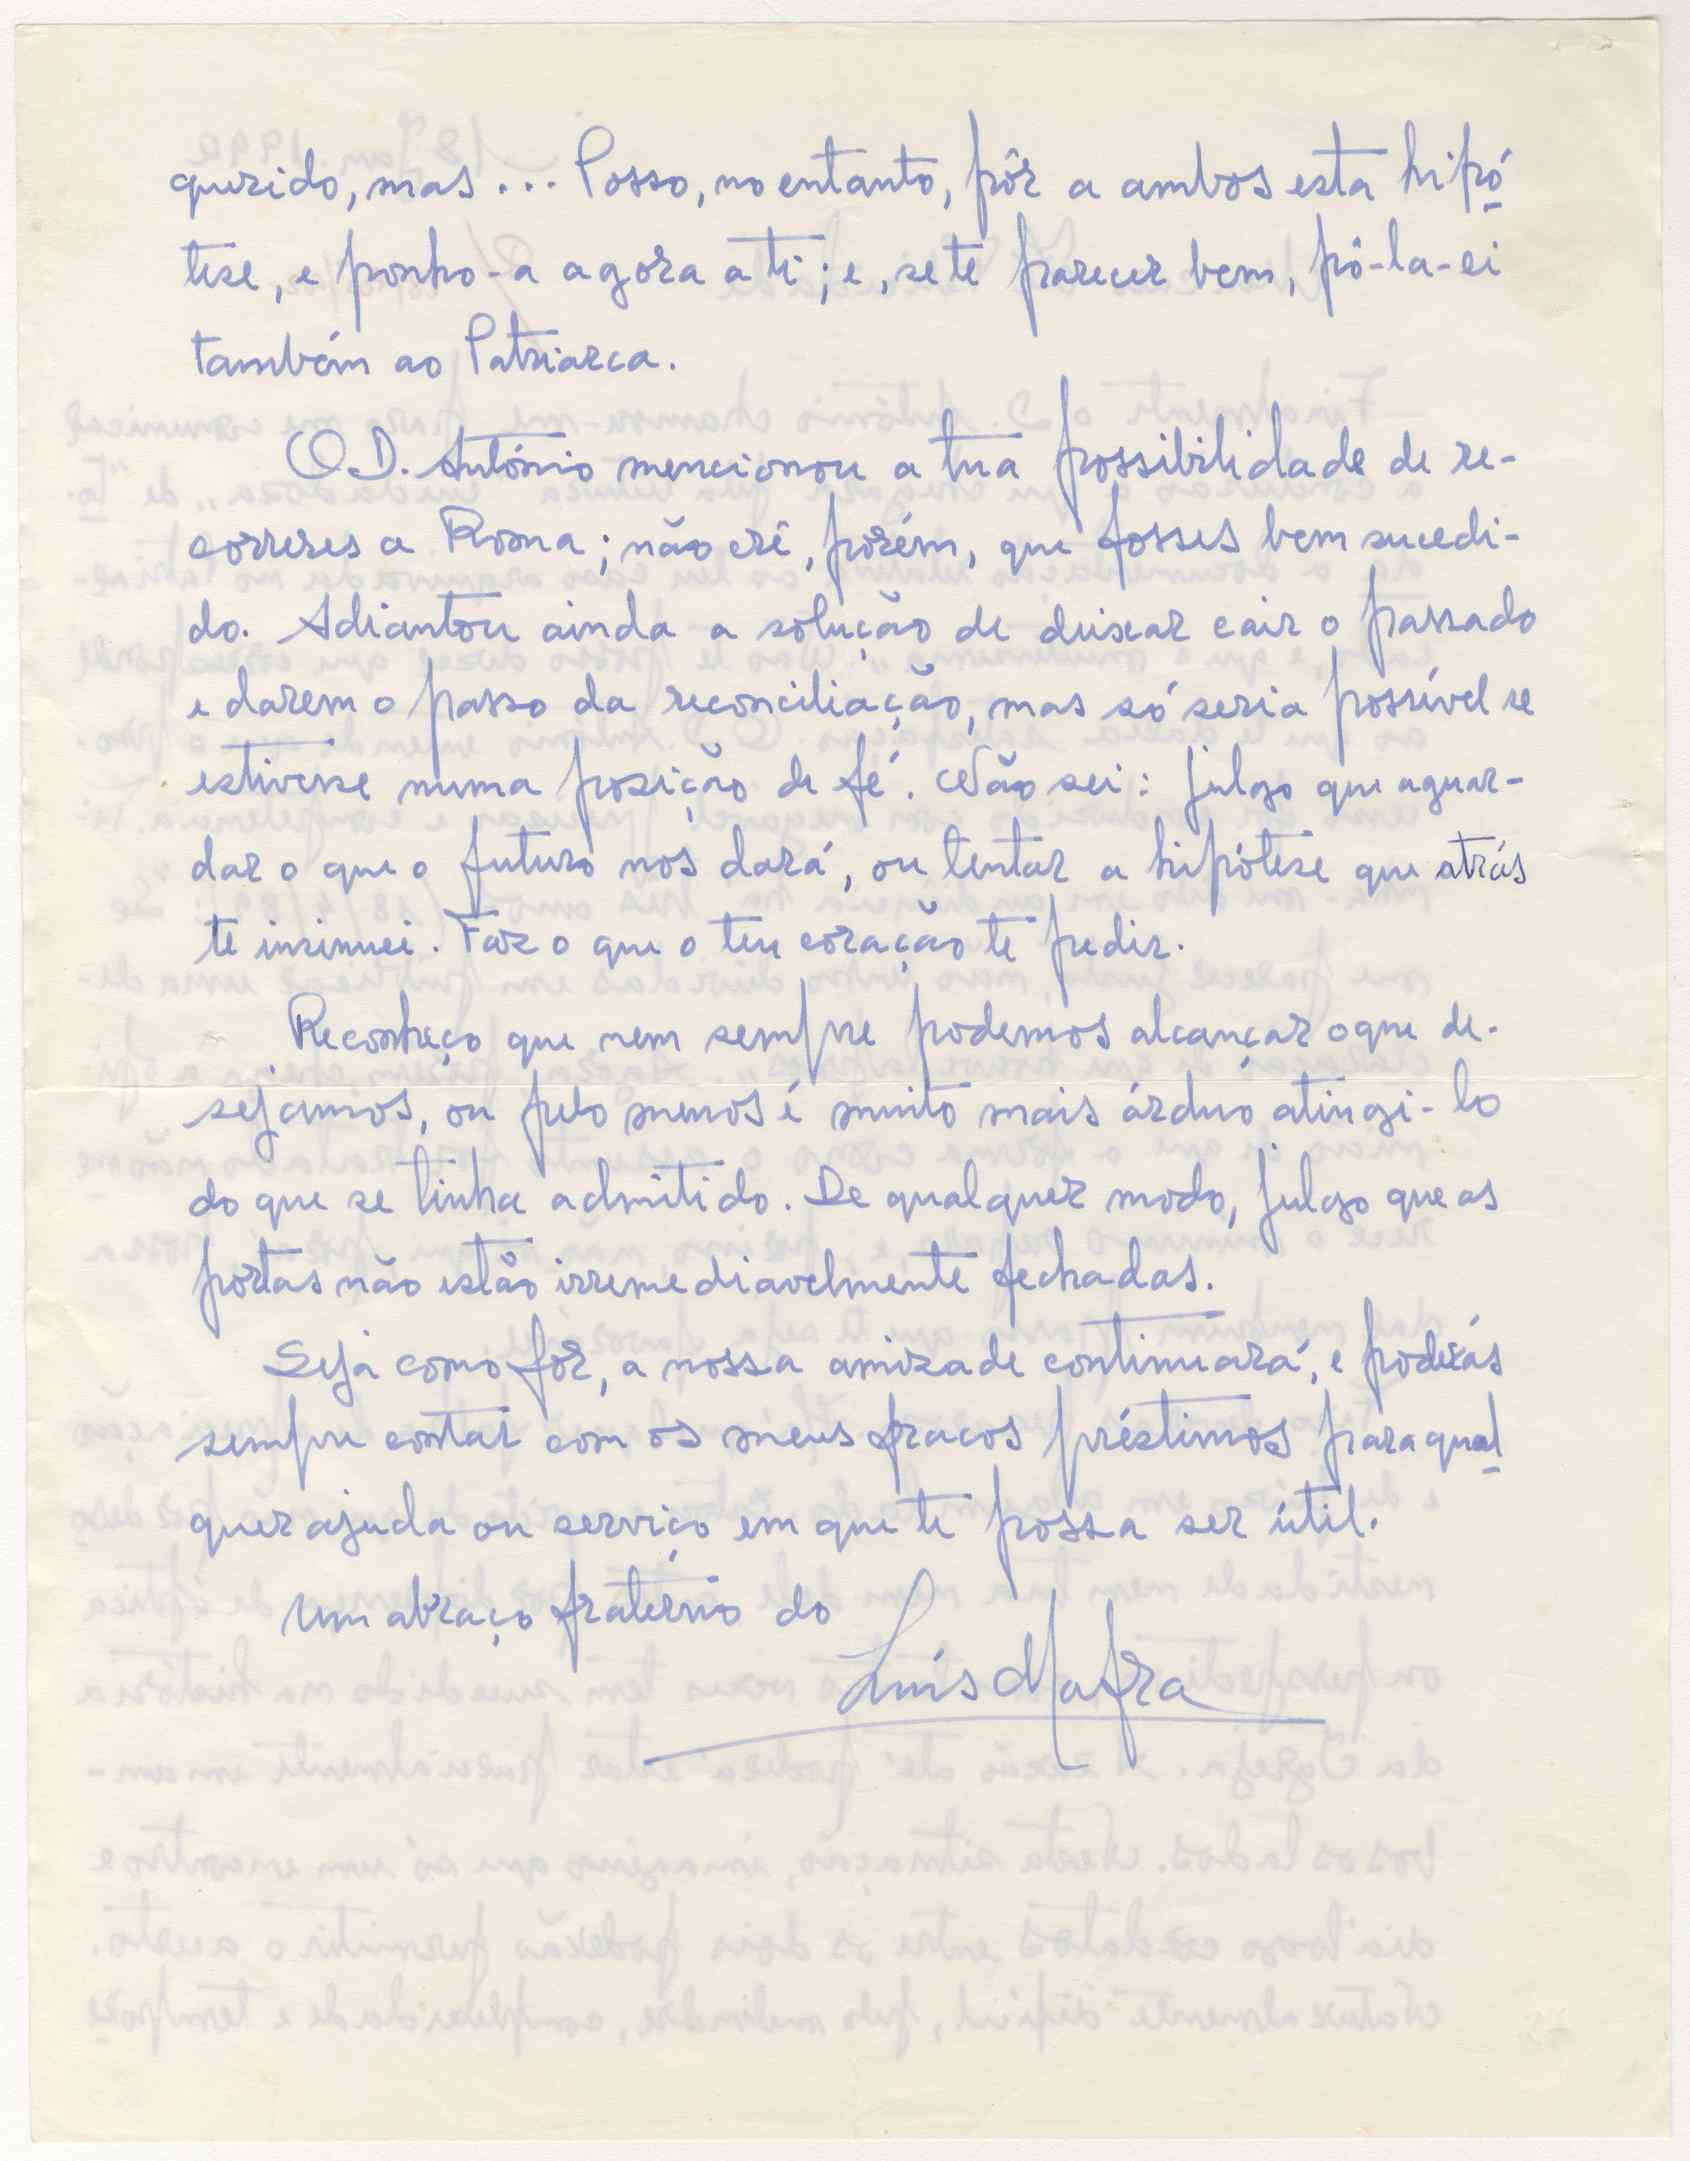 querido, mas... Posso, no entanto, pôr a ambos esta hipó
tese, e ponho-a agora a ti; e, se te parecer bem, pô-la-ei
também ao Patriarca.
O D. António mencionou a tua possibilidade de re-
correres a Roma; não crê, porém, que fosses bem sucedi-
do. Adiantou ainda a solução de deixar cair o passado
e darem o passo da reconciliação, mas só seria possível se
estivesse numa posição de fé. Não sei: julgo que aguar-
dar o que o futuro nos dará, ou tentar a hipótese que atrás
te insinuei. Faz o que o teu coração te pedir.
Reconheço que nem sempre podemos alcançar o que de-
sejamos, ou pelo menos é muito mais árduo atingi-lo
do que se tinha admitido. De qualquer modo, julgo que as
portas não estão irremediavelmente fechadas.
Seja como fôr, a nossa amizade continuará, e poderás
sempre contar com os meus fracos préstimos para qual
quer ajuda ou serviço em que te possa ser útil.
Um abraço fraterno do
Luís Mafra